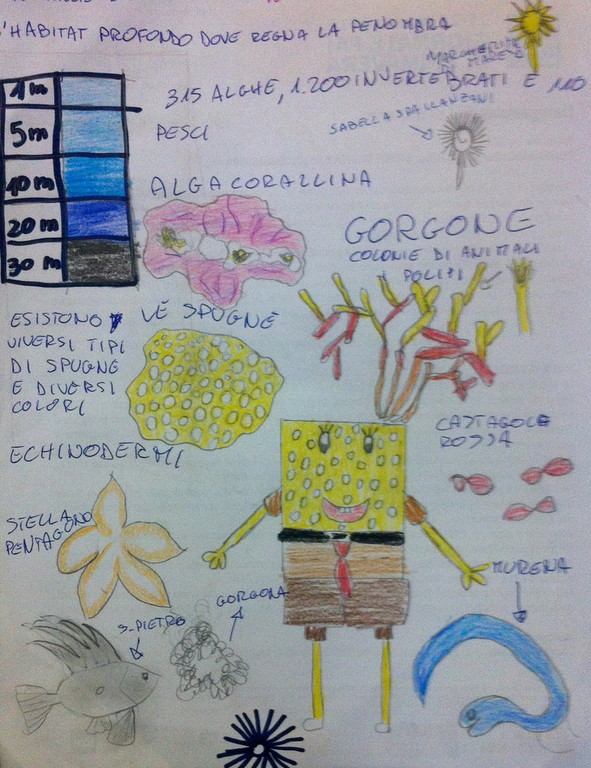 L'HABITAT PROFONDO DOVE REGNA LA PENOMBRA
MARGHERITA
DI MARE
315 ALGHE, 1.200 INVERTEBRATI E
PESCI
SABELLA SPALLANZANI
1m
5m
10m
20m
30m
ALGA CORALLINA
GORGONE
COLONIE DI ANIMALI
POLIPI
ESISTONO
DIVERSI TIPI
DI SPUGNE
E DIVERSI
COLORI
LE SPUGNE
ECHINODERMI
CASTAGOLE
ROSSA
STELLA
PENTAGONO
S. PIETRO
GORGONA
MURENA